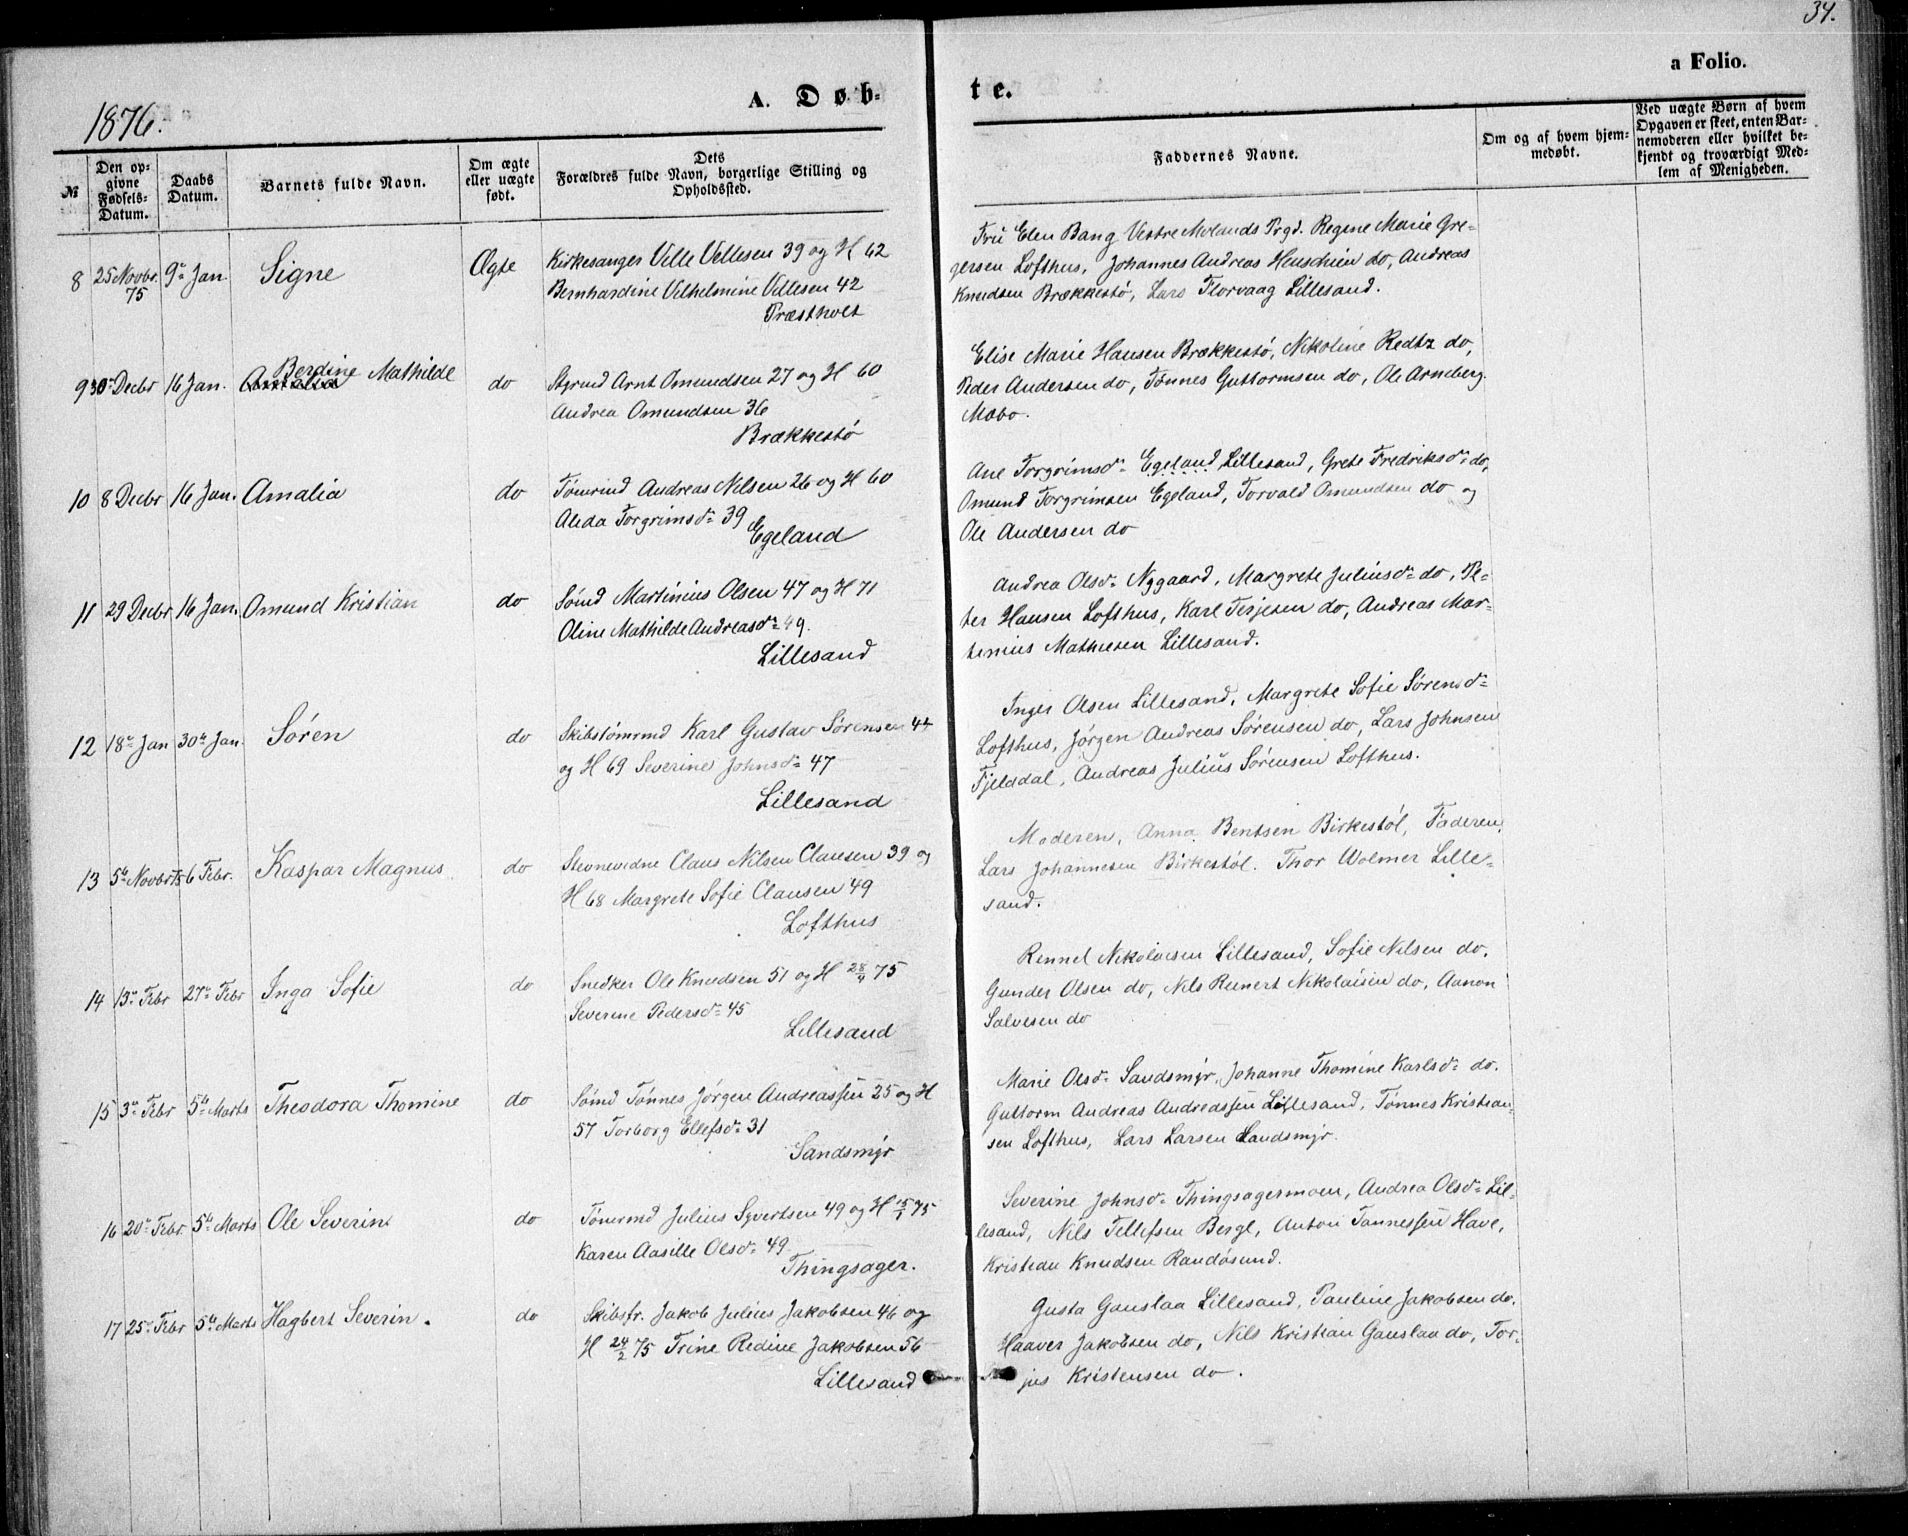 34.
a Folio.
1876.
A. Døb-
te.
№
Den op-
givne
Fødsels-
Datum.
Daabs
Datum.
Barnets fulde Navn.
Om ægte
eller uægte
født.
Dets
Forældres fulde Navn, borgerlige Stilling og
Opholdssted.
Faddernes Navne.
Om og af hvem hjem-
medøbt.
Ved uægte Børn af hvem
Opgaven er skeet, enten Bar-
nemoderen eller hvilket be-
kjendt og troværdigt Med-
lem af Menigheden.
8 25 Novbr. 75 9de Jan. Signe Ægte
Kirkesanger Velle Vellesen 39 og H 62
Bernhardine Vilhelmine Vellesen 42
Præstholt
Fru Elen Bang Vestre Molands Prgd. Regine Marie Gre-
gersen Lofthus, Johannes Andreas Henschien do, Andreas
Knudsen Brækkestø, Lars Florvaag Lillesand.
9 30te Decbr 16 Jan. Berdine Mathilde do
Styrmd Arnt Omundsen 27 og H 60
Andrea Omundsen 36
Brækkestø
Elise Marie Hansen Brækkestø, Nikoline Redtz do,
Peder Andersen do, Tønnes Guttormsen do, Ole Arneberg
Møbo.
10 8 Decbr 16 Jan. Amalia do
Tømrmd Andreas Nilsen 26 og H 60
Aleda Torgrimsdr 39
Egeland
Ane Torgrimsdr Egeland Lillesand, Grete Fredriksdr do,
Omund Torgrimsen Egeland, Torvald Omundsen do og
Ole Andersen do
11 29 Decbr 16 Jan. Omund Kristian do
Sømd Martinius Olsen 47 og H 71
Oline Mathilde Andreasdr 49.
Lillesand
Andrea Olsdr Nygaard, Margrete Juliusdr do, Pe-
ter Hansen Lofthus, Karl Terjesen do, Andreas Mar-
tinius Mathiesen Lillesand.
12 18de Jan 30te Jan. Søren do
Skibstømrmd Karl Gustav Sørensen 44
og H 69 Severine Johnsdr 47
Lillesand
Inger Olsen Lillesand, Margrete Sofie Sørensdr
Lofthus, Jørgen Andreas Sørensen do, Lars Johnsen
Fjelddal, Andreas Julius Sørensen Lofthus.
13 5te Novbr 75 6 Febr. Kaspar Magnus do
Stevnevidne Claus Nilsen Clausen 39 og
H 68 Margrete Sofie Clausen 49
Lofthus
Moderen, Anna Bentsen Birkestøl, Faderen,
Lars Johannesen Birkestøl. Thor Wolmer Lille-
sand.
14 13de Febr 27de Febr Inga Sofie do
Snedker Ole Knudsen 51 og H 28/4 75
Severine Pedersdr 45
Lillesand
Rennel Nikolaisen Lillesand, Sofie Nilsen do,
Gunder Olsen do, Nils Reinert Nikolaisen do, Aanon
Salvesen do
15 3de Febr 5te Marts Theodora Thomine do
Sømd Tønnes Jørgen Andreassen 25 og H
57 Torborg Ellefsdr 31
Sandsmyr
Marie Olsdr Sandsmyr, Johanne Thomine Karlsdr do.
Guttorm Andreas Andreassen Lillesand, Tønnes Kristian-
sen Lofthus, Lars Larsen Sandsmyr.
16 20de Febr. 5te Marts Ole Severin do
Tømrmd Julius Syvertsen 49 og H 15/1 75
Karen Aasille Olsdr 49
Thingsager.
Severine Johnsdr Thingsagermoen, Andrea Olsdr Lil-
lesand, Nils Tellefsen Berge, Anton Tønnessen Have,
Kristian Knudsen Randøsund.
17 25de Febr 5te Marts Hagbert Severin. do
Skibsfr. Jakob Julius Jakobsen 46 og
H 24/2 75 Trine Redine Jakobsen 56
Lillesand
Gusta Gauslaa Lillesand, Pauline Jakobsen do,
Haaver Jakobsen do, Nils Kristian Gauslaa do, Tor-
jus Kristensen do.